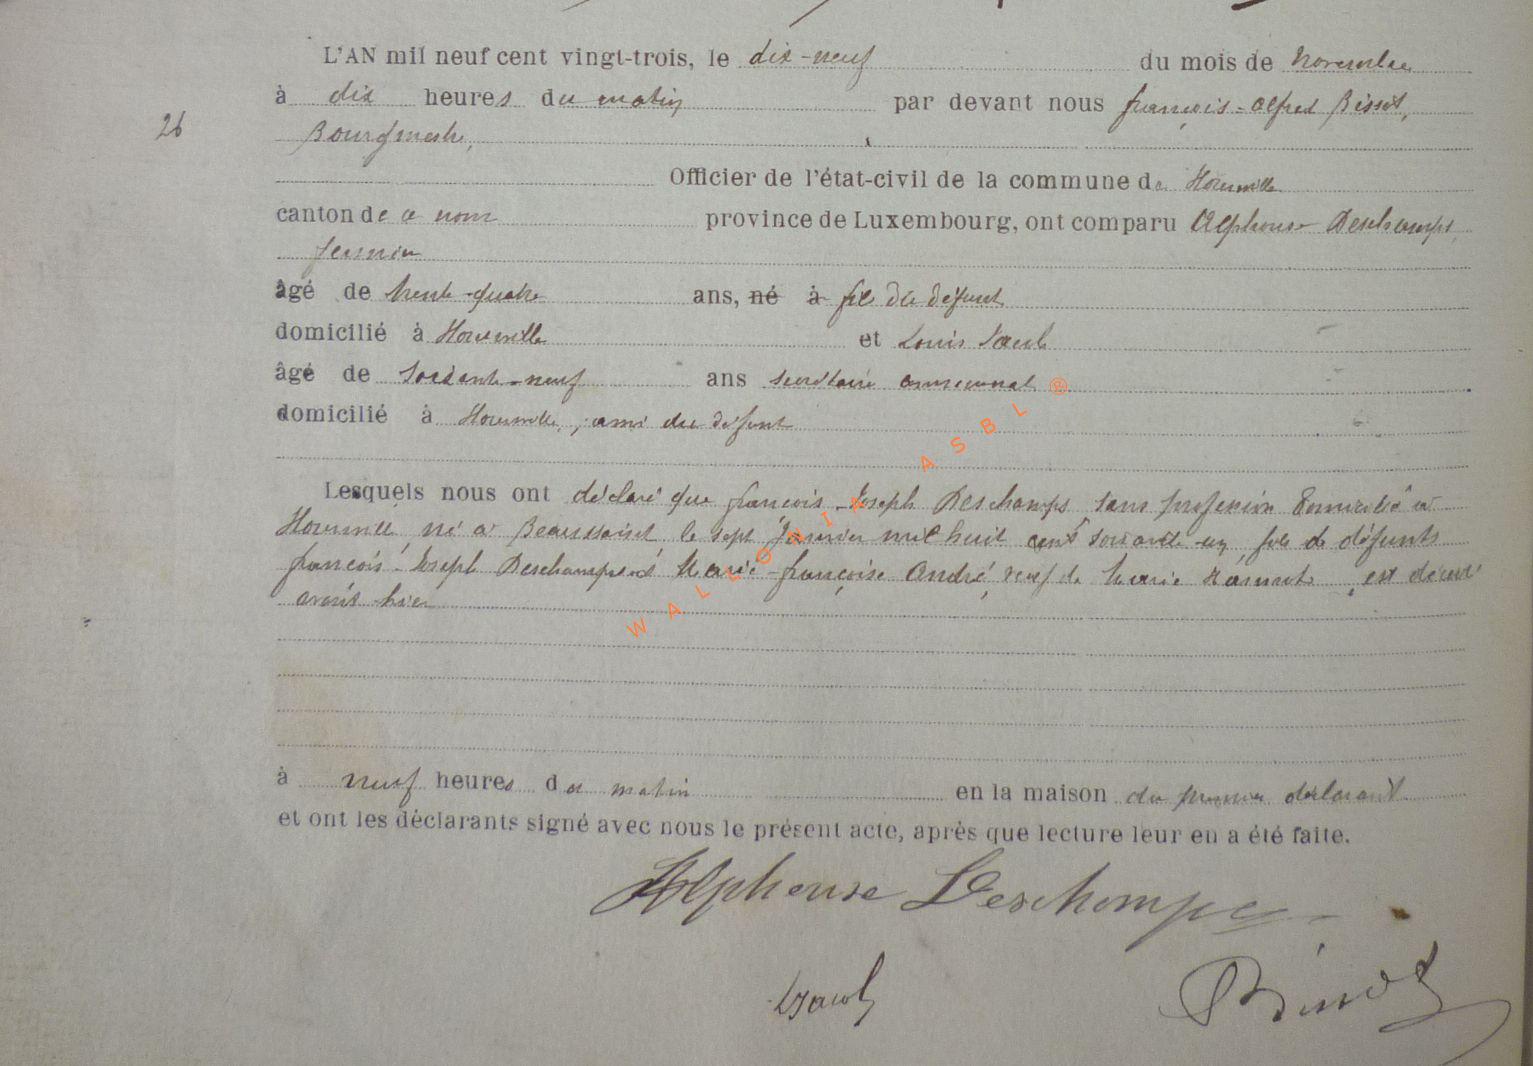 L'AN mil neuf cent vingt-trois, le dix-neuf du mois de Novembre
à dix heures du matin par devant nous françois-Alfred Bissot,
26
Bourgmestre,
Officier de l'état-civil de la commune de Houmville
canton de ce nom province de Luxembourg, ont comparu Alphonse Deschamps,
fermier
âgé de trente-quatre ans, né à fils du défunt
domicilié à et Louis
âgé de soixante-neuf ans secrétaire communal
domicilié à , ami du défunt
Lesquels nous ont déclaré que françois-Joseph Deschamps sans profession domicilié à
né à Beaussaint le sept Janvier mil huit cent soixante-un, fils de défunts
françois-Joseph Deschamps et Marie-françoise André, veuf de Marie est décédé
avant hier
à neuf heures du matin en la maison du premier déclarant
et ont les déclarants signé avec nous le présent acte, après que lecture leur en a été faite.
Alphonse Deschamps
Bissot
WALLONIA ASBL ®